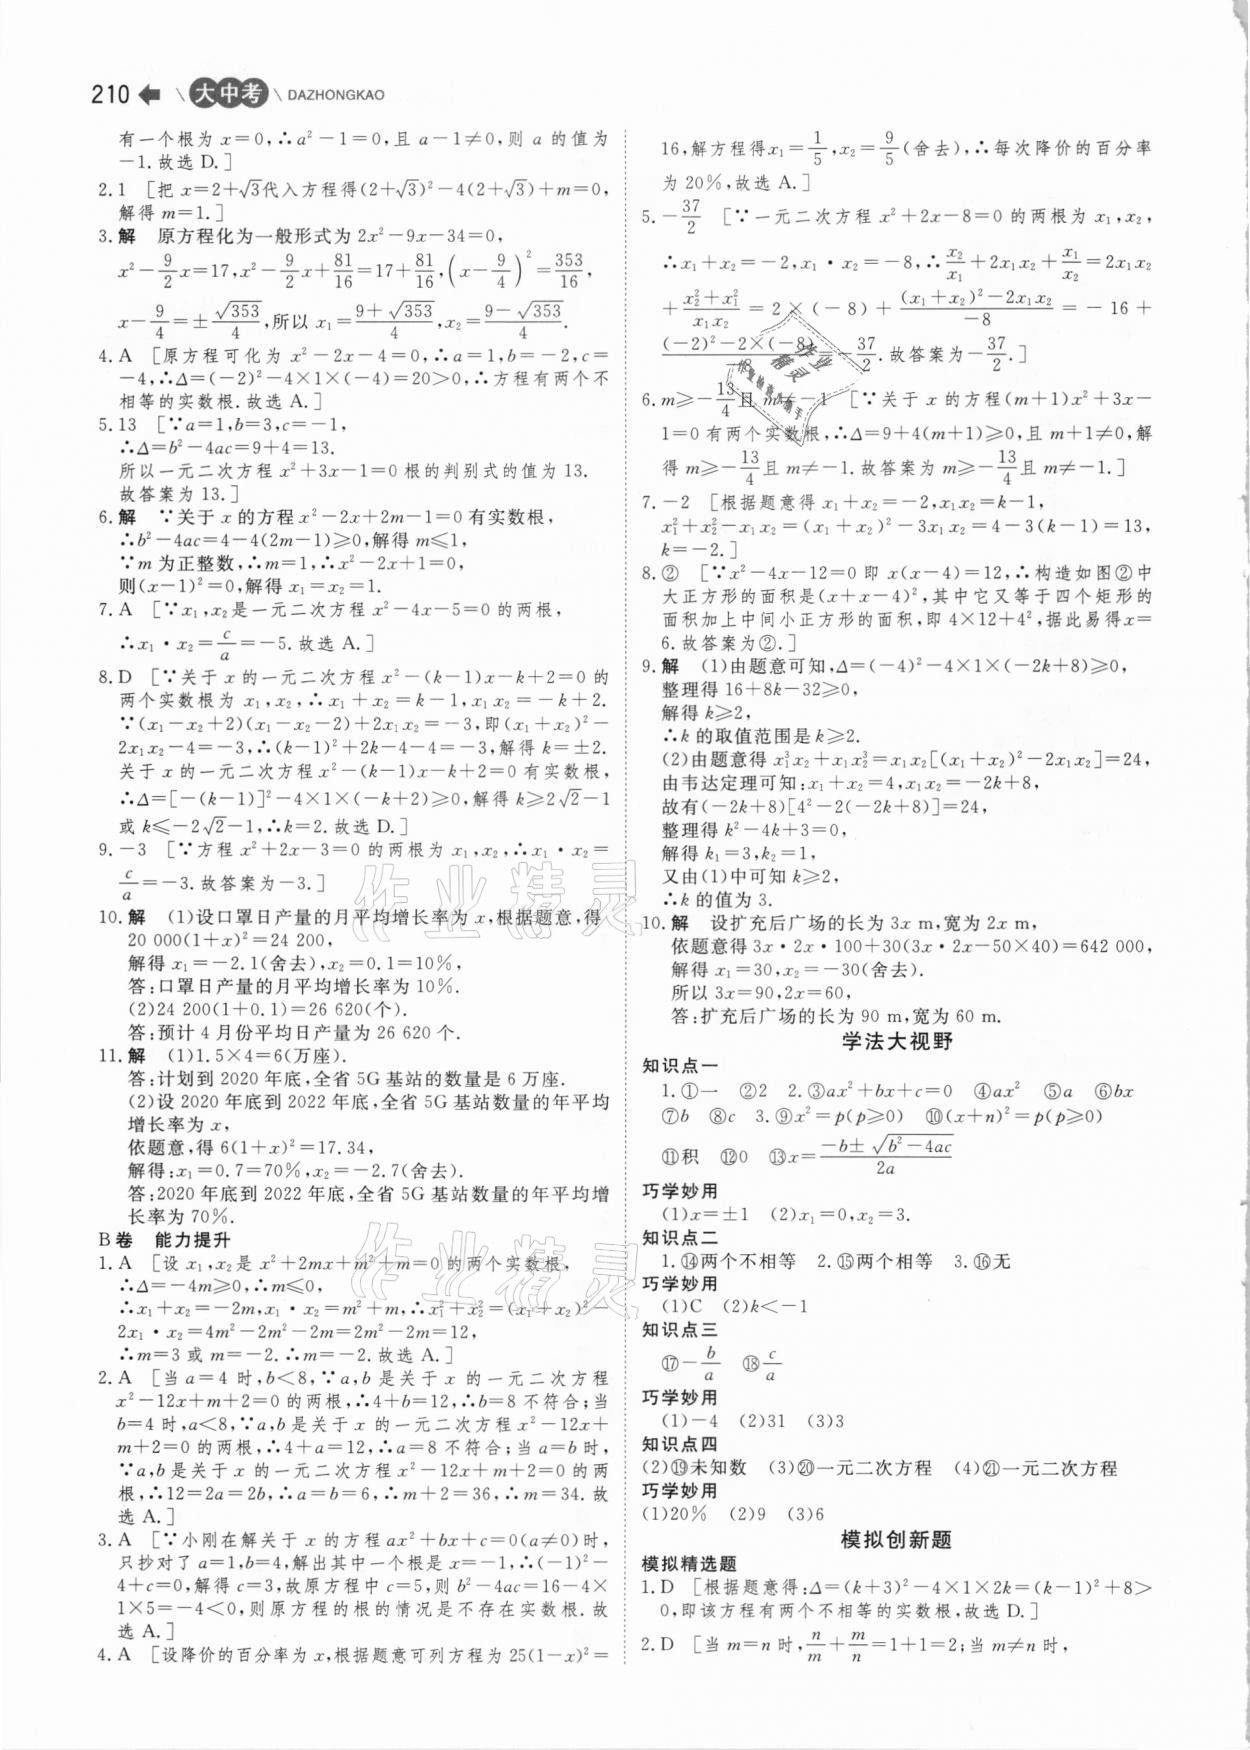 210 大中考 DAZHONGKAO
有一个根为 x=0,∴a²-1=0,且 a-1≠0,则 a 的值为
-1.故选 D.]
2.1 [把 x=2+√3代入方程得(2+√3)²-4(2+√3)+m=0,
解得 m=1.]
3.解 原方程化为一般形式为 2x²-9x-34=0,
x²-9/2x=17,x²-9/2x+81/16=17+81/16,(x-9/4)²=353/16,
x-9/4=±√353/4,所以 x₁=(9+√353)/4,x₂=(9-√353)/4.
4.A [原方程可化为 x²-2x-4=0,∴a=1,b=-2,c=
-4,∴Δ=(-2)²-4×1×(-4)=20>0,∴方程有两个不
相等的实数根.故选 A.]
5.13 [∵a=1,b=3,c=-1,
∴Δ=b²-4ac=9+4=13.
所以一元二次方程 x²+3x-1=0 根的判别式的值为 13.
故答案为 13.]
6.解 ∵关于 x 的方程 x²-2x+2m-1=0 有实数根,
∴b²-4ac=4-4(2m-1)≥0,解得 m≤1,
∵m 为正整数,∴m=1,∴x²-2x+1=0,
则(x-1)²=0,解得 x₁=x₂=1.
7.A [∵x₁,x₂是一元二次方程 x²-4x-5=0 的两根,
∴x₁·x₂=c/a=-5.故选 A.]
8.D [∵关于 x 的一元二次方程 x²-(k-1)x-k+2=0 的
两个实数根为 x₁,x₂,∴x₁+x₂=k-1,x₁x₂=-k+2.
∵(x₁-x₂+2)(x₁-x₂-2)+2x₁x₂=-3,即(x₁+x₂)²-
2x₁x₂-4=-3,∴(k-1)²+2k-4-4=-3,解得 k=±2.
关于 x 的一元二次方程 x²-(k-1)x-k+2=0 有实数根,
∴Δ=[-(k-1)]²-4×1×(-k+2)≥0,解得 k≥2√2-1
或 k≤-2√2-1,∴k=2.故选 D.]
9.-3 [∵方程 x²+2x-3=0 的两根为 x₁,x₂,∴x₁·x₂=
c/a=-3.故答案为-3.]
10.解 (1)设口罩日产量的月平均增长率为 x,根据题意,得
20 000(1+x)²=24 200,
解得 x₁=-2.1(舍去),x₂=0.1=10%,
答:口罩日产量的月平均增长率为 10%.
(2)24 200(1+0.1)=26 620(个).
答:预计 4 月份平均日产量为 26 620 个.
11.解 (1)1.5×4=6(万座).
答:计划到 2020 年底,全省 5G 基站的数量是 6 万座.
(2)设 2020 年底到 2022 年底,全省 5G 基站数量的年平均
增长率为 x,
依题意,得 6(1+x)²=17.34,
解得:x₁=0.7=70%,x₂=-2.7(舍去).
答:2020 年底到 2022 年底,全省 5G 基站数量的年平均增
长率为 70%.
B 卷 能力提升
1.A [设 x₁,x₂是 x²+2mx+m²+m=0 的两个实数根,
∴Δ=-4m≥0,∴m≤0,
∴x₁+x₂=-2m,x₁·x₂=m²+m,∴x₁²+x₂²=(x₁+x₂)²-
2x₁·x₂=4m²-2m²-2m=2m²-2m=12,
∴m=3 或 m=-2.∴m=-2.故选 A.]
2.A [当 a=4 时,b<8,∵a,b 是关于 x 的一元二次方程
x²-12x+m+2=0 的两根,∴4+b=12,∴b=8 不符合;当
b=4 时,a<8,∵a,b 是关于 x 的一元二次方程 x²-12x+
m+2=0 的两根,∴4+a=12,∴a=8 不符合;当 a=b 时,
∵a,b 是关于 x 的一元二次方程 x²-12x+m+2=0 的两
根,∴12=2a=2b,∴a=b=6,∴m+2=36,∴m=34.故
选 A.]
3.A [∵小刚在解关于 x 的方程 ax²+bx+c=0(a≠0)时,
只抄对了 a=1,b=4,解出其中一个根是 x=-1,∴(-1)²-
4+c=0,解得 c=3,故原方程中 c=5,则 b²-4ac=16-4×
1×5=-4<0,则原方程的根的情况是不存在实数根.故
选 A.]
4.A [设降价的百分率为 x,根据题意可列方程为 25(1-x)²=
16,解方程得x₁=1/5,x₂=9/5(舍去),∴每次降价的百分率
为 20%,故选 A.]
5.-37/2 [∵一元二次方程 x²+2x-8=0 的两根为 x₁,x₂,
∴x₁+x₂=-2,x₁·x₂=-8,∴x₂/x₁+2x₁x₂+x₁/x₂=2x₁x₂
+(x₂²+x₁²)/(x₁x₂)=2×(-8)+((x₁+x₂)²-2x₁x₂)/(-8)=-16+
((-2)²-2×(-8))/(-8)=-37/2.故答案为-37/2.]
6.m≥-13/4且 m≠-1 [∵关于 x 的方程(m+1)x²+3x-
1=0 有两个实数根,∴Δ=9+4(m+1)≥0,且 m+1≠0,解
得 m≥-13/4且 m≠-1.故答案为 m≥-13/4且 m≠-1.]
7.-2 [根据题意得 x₁+x₂=-2,x₁x₂=k-1,
x₁²+x₂²-x₁x₂=(x₁+x₂)²-3x₁x₂=4-3(k-1)=13,
k=-2.]
8.② [∵x²-4x-12=0 即 x(x-4)=12,∴构造如图②中
大正方形的面积是(x+x-4)²,其中它又等于四个矩形的
面积加上中间小正方形的面积,即 4×12+4²,据此易得x=
6.故答案为②.]
9.解 (1)由题意可知,Δ=(-4)²-4×1×(-2k+8)≥0,
整理得 16+8k-32≥0,
解得 k≥2,
∴k 的取值范围是 k≥2.
(2)由题意得 x₁³x₂+x₁x₂³=x₁x₂[(x₁+x₂)²-2x₁x₂]=24,
由韦达定理可知:x₁+x₂=4,x₁x₂=-2k+8,
故有(-2k+8)[4²-2(-2k+8)]=24,
整理得 k²-4k+3=0,
解得 k₁=3,k₂=1,
又由(1)中可知 k≥2,
∴k 的值为 3.
10.解 设扩充后广场的长为 3x m,宽为 2x m,
依题意得 3x·2x·100+30(3x·2x-50×40)=642 000,
解得 x₁=30,x₂=-30(舍去).
所以 3x=90,2x=60,
答:扩充后广场的长为 90 m,宽为 60 m.
学法大视野
知识点一
1.①一 ②2 2.③ax²+bx+c=0 ④ax² ⑤a ⑥bx
⑦b ⑧c 3.⑨x²=p(p≥0) ⑩(x+n)²=p(p≥0)
⑪积 ⑫0 ⑬x=(-b±√(b²-4ac))/2a
巧学妙用
(1)x=±1 (2)x₁=0,x₂=3.
知识点二
1.⑭两个不相等 2.⑮两个相等 3.⑯无
巧学妙用
(1)C (2)k<-1
知识点三
⑰-b/a ⑱c/a
巧学妙用
(1)-4 (2)31 (3)3
知识点四
(2)⑲未知数 (3)⑳一元二次方程 (4)㉑一元二次方程
巧学妙用
(1)20% (2)9 (3)6
模拟创新题
模拟精选题
1.D [根据题意得:Δ=(k+3)²-4×1×2k=(k-1)²+8>
0,即该方程有两个不相等的实数根,故选 D.]
2.D [当 m=n 时,n/m+m/n=1+1=2;当 m≠n 时,
作业精灵
作业精灵
作业精灵